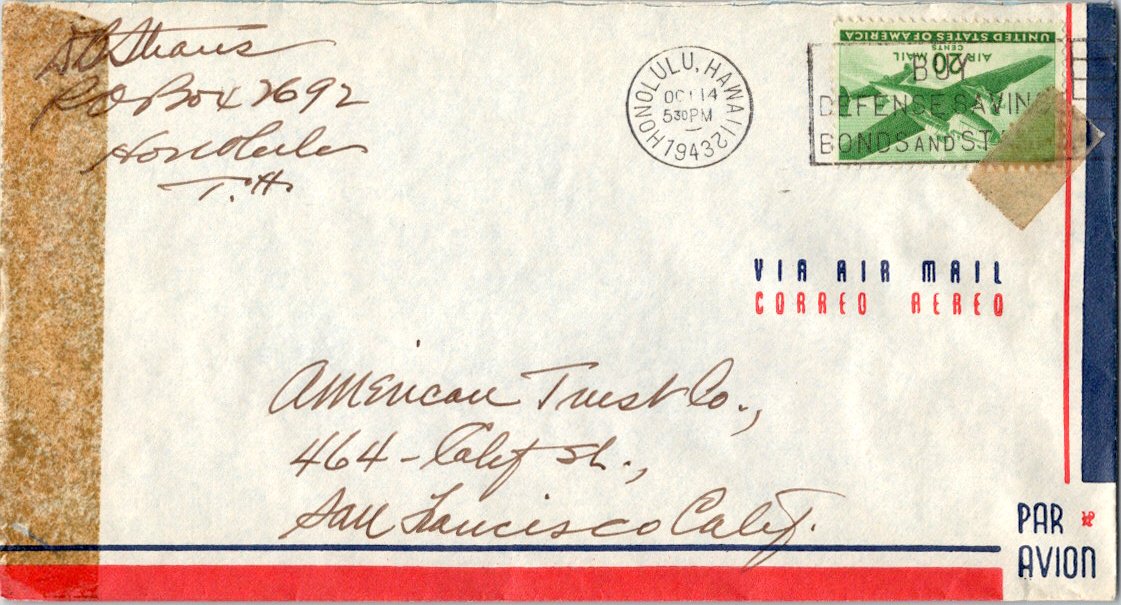 PO Box 2692
Honolulu
T.H.
HONOLULU, HAWAII
OCT 14
5 30 PM
1943
UNITED STATES OF AMERICA
20 CENTS
AIR MAIL
BUY
DEFENSE SAVINGS
BONDS AND ST
VIA AIR MAIL
CORREO AEREO
American Trust Co.,
464 - Calif St.,
San Francisco Calif.
PAR
AVION